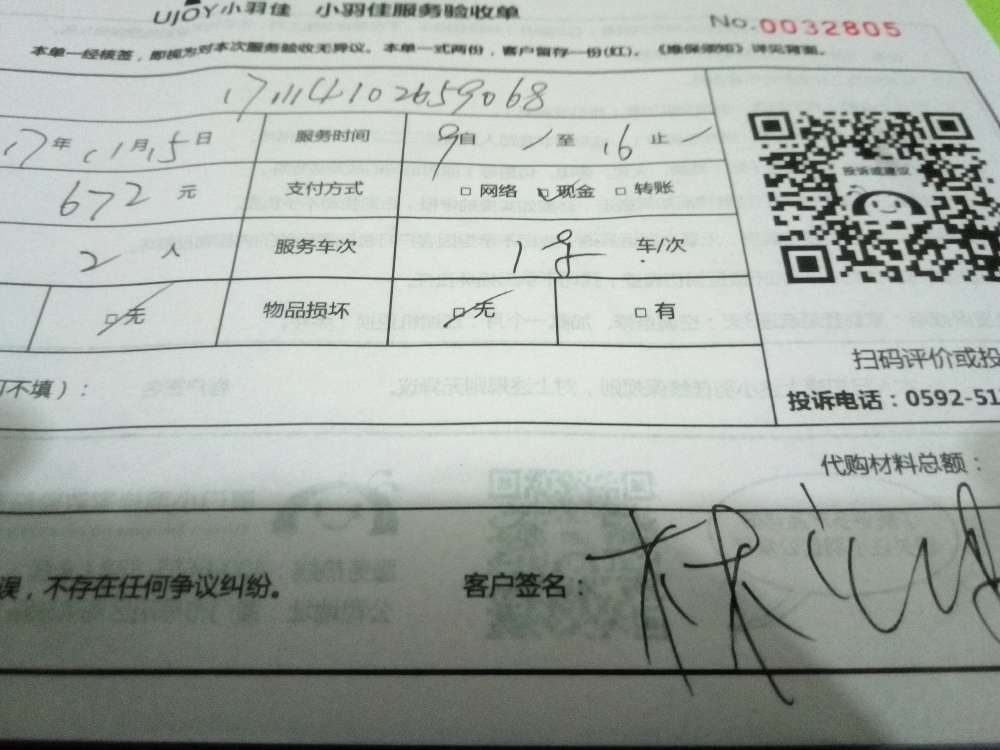 UJOY小羽佳 小羽佳服务验收单
No.0032805
本单一经核签，即视为对本次服务验收无异议。本单一式两份，客户留存一份(红)。《维保须知》详见背面。
171114102659068
17年11月15日 服务时间 9自 至 16止
672元 支付方式 □网络 □现金 □转账
投诉或建议
2人 服务车次 车/次
□无 物品损坏 □无 □有
扫码评价或投
可不填）：
投诉电话：0592-51
代购材料总额：
误，不存在任何争议纠纷。 客户签名：